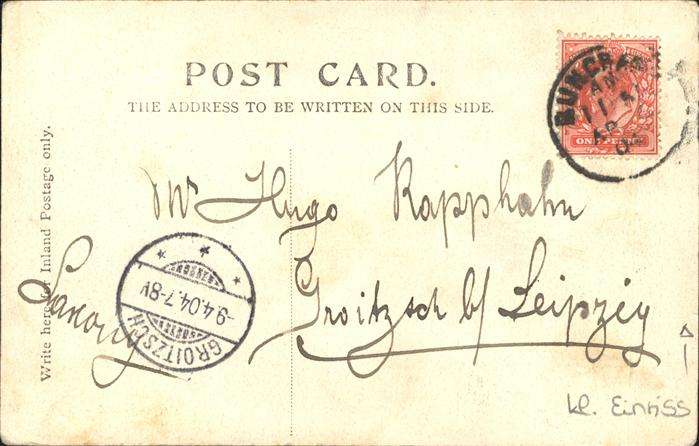 POST CARD.
THE ADDRESS TO BE WRITTEN ON THIS SIDE.
Write here for Inland Postage only.
ONE PENNY
Mr Hugo Rapphahn
Groitzsch b/ Leipzig
Saxony
GROITZSCH
-9.4.04.7-8V
kl. Einriss